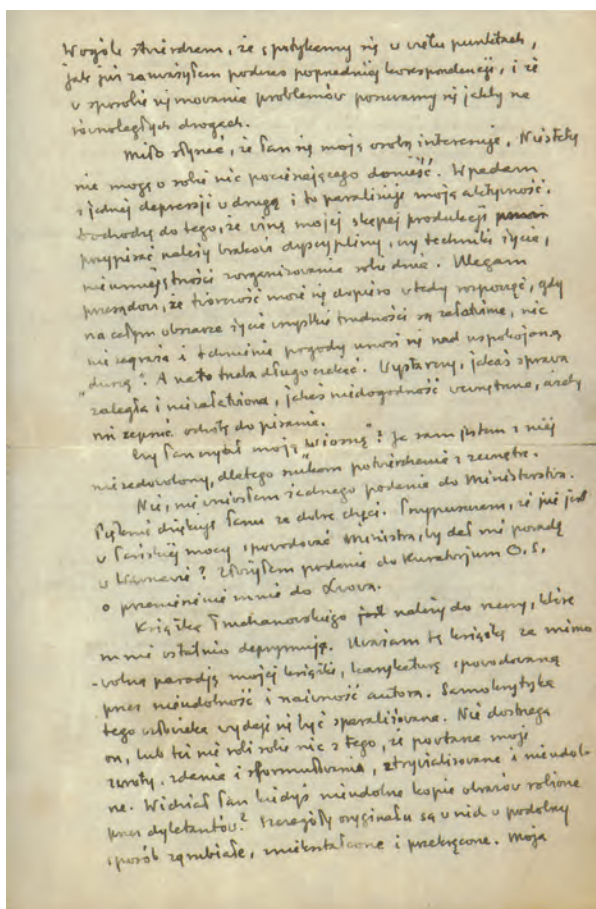 Wogóle stwierdzam, że spotykamy się w wielu punktach,
jak już zauważyłem podczas poprzedniej korespondencji, i że
w sposobie ujmowania problemów posuwamy się jakby na
równoległych drogach.
Miło słyszeć, że Pan się moją osobą interesuje. Niestety
nie mogę o sobie nic pocieszającego donieść. Wpadam
z jednej depresji w drugą i to paraliżuje moją aktywność.
Dochodzę do tego, że winę mojej skąpej produkcji
przypisać należy brakowi dyscypliny, czy techniki życia,
nieumiejętności zorganizowania sobie dnia. Ulegam
przesądowi, że twórczość może się dopiero wtedy rozpocząć, gdy
na całym obszarze życia wszystkie trudności są załatwione, nic
nie zagraża i tchnienie pogody unosi się nad uspokojoną
„duszą". A na to trzeba długo czekać. Wystarczy, jakaś sprawa
zaległa i niezałatwiona, jakaś niedogodność wewnętrzna, ażeby
mi zepsuć ochotę do pisania.
Czy Pan czytał moją „Wiosnę"? Ja sam jestem z niej
niezadowolony, dlatego szukam potwierdzenia z zewnątrz.
Nie, nie wniosłem żadnego podania do Ministerstwa.
Pięknie dziękuję Panu za dobre chęci. Przypuszczam, że nie jest
w Pańskiej mocy spowodować Ministra, by dał mi posadę
w Warszawie? Złożyłem podanie do Kuratorjum O.S.
o przeniesienie mnie do Lwowa.
Książka Truchanowskiego należy do rzeczy, które
mnie ostatnio deprymują. Uważam tę książkę za mimo
-wolną parodję mojej książki, karykaturę spowodowaną
przez nieudolność i naiwność autora. Samokrytyka
tego człowieka wydaje się być sparaliżowana. Nie dostrzega
on, lub też nie robi sobie nic z tego, że powtarza moje
zwroty, zdania i sformułowania, ztrywializowane i nieudol-
ne. Widział Pan kiedyś nieudolne kopie obrazów robione
przez dyletantów? Szczegóły oryginału są w nich w podobny
sposób zgrubiałe, zniekształcone i przekręcone. Moja